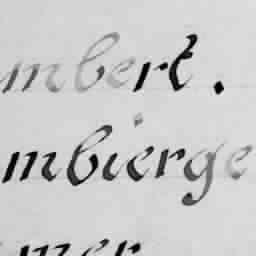 mbert.
mbierge
mer